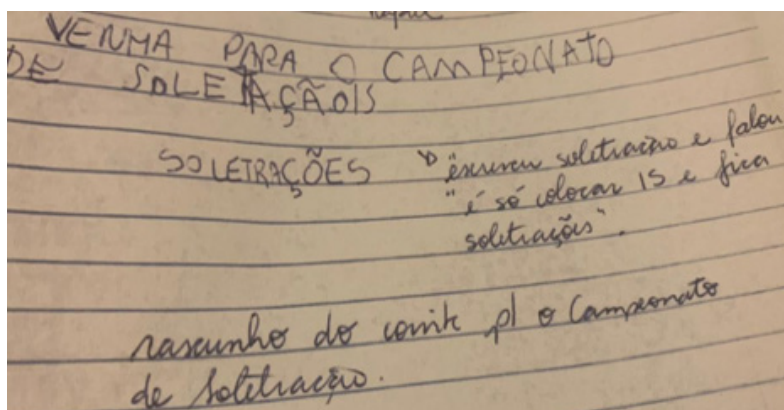 VENMA PARA O CAMPEONATO
DE SOLETAÇÃOIS
SOLETRAÇÕES
"escreveu soletração e falou
"é só colocar IS e fica
soletrações".
rascunho do convite p/ o Campeonato
de soletração.